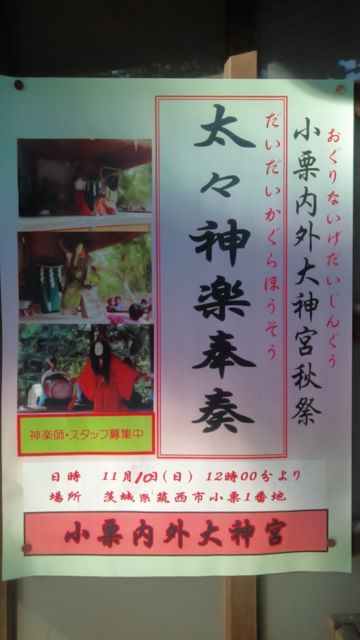 小栗内外大神宮秋祭
おぐりないげだいじんぐう
太々神楽奉奏
だいだいかぐらほうそう
神楽師・スタッフ募集中
日時 11月10日(日) 12時00分より
場所 茨城県筑西市小栗1番地
小栗内外大神宮